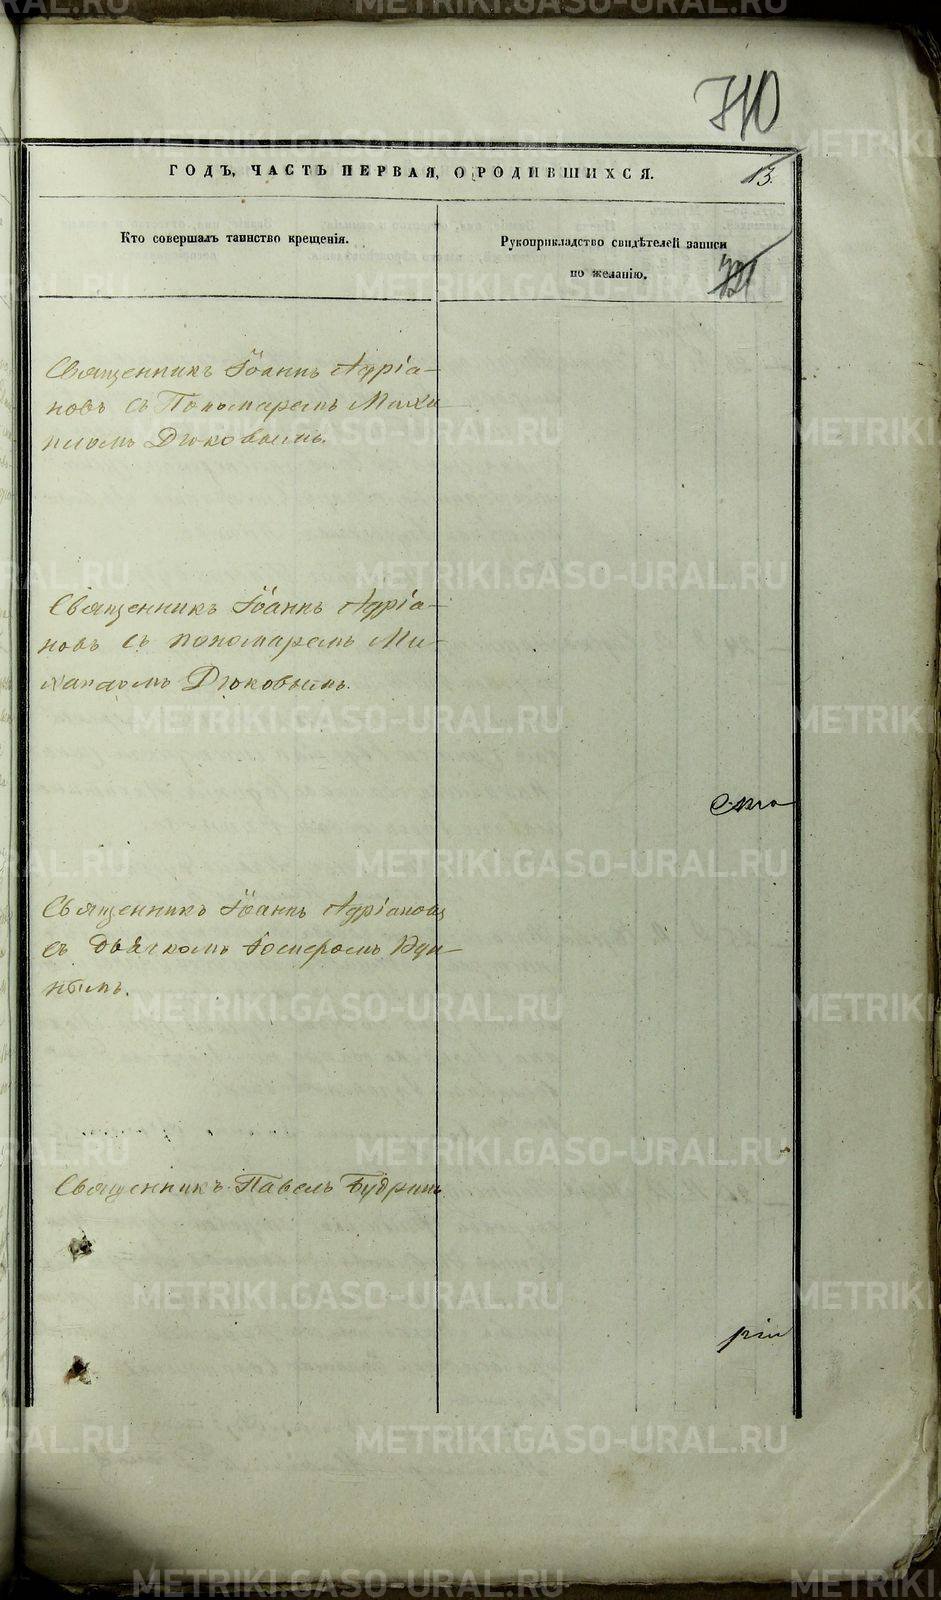 710
ГОДЪ, ЧАСТЬ ПЕРВАЯ, О РОДИВШИХСЯ.
13.
Кто совершалъ таинство крещенія.
Рукоприкладство свидѣтелей записи
по желанію.
Священникъ Іоаннъ Адріа-
новъ съ Пономаремъ Михи
иломъ Дюковымъ.
Священникъ Іоаннъ Адріа-
новъ съ пономаремъ Ми-
хаиломъ Дюковымъ.
Священникъ Іоаннъ Адріановъ
съ Дьячкомъ
нымъ.
Священникъ Павелъ Будринъ
METRIKI.GASO-URAL.RU